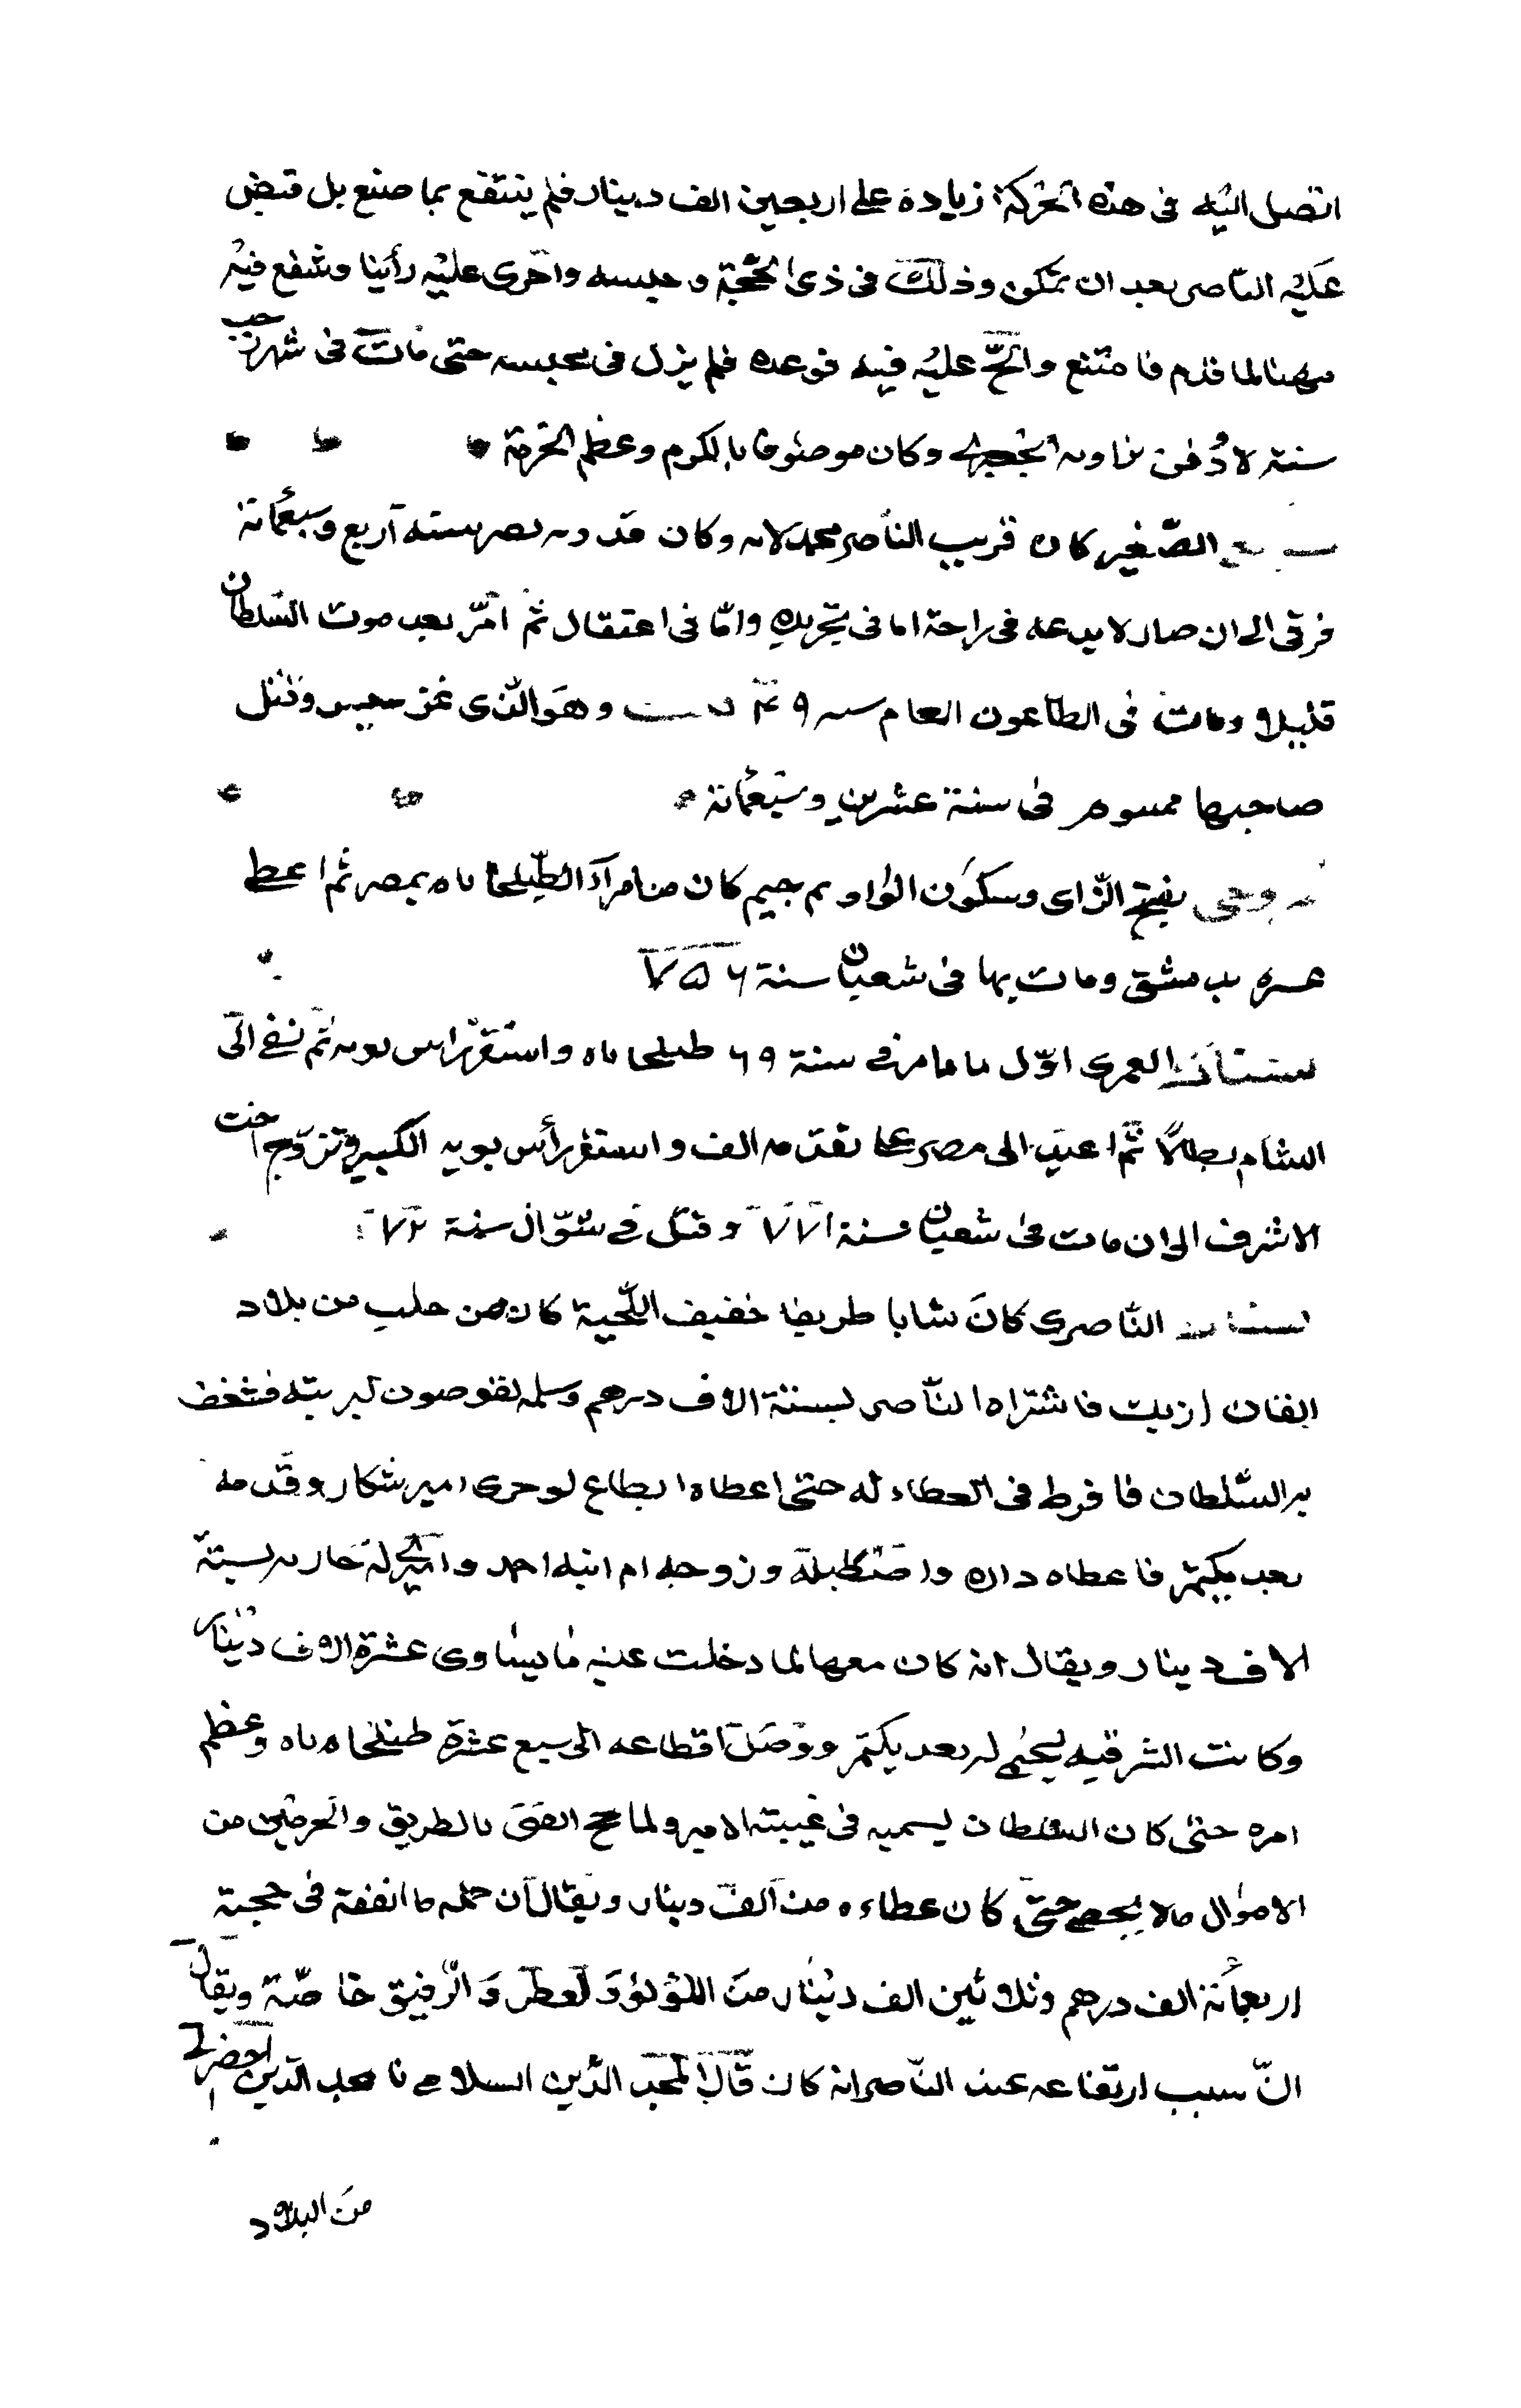 اتصل اليه فى هذه الحركة زيادة على اربعين الف دينار فلم ينتفع بما صنع بل قبض
عليه الناصر بعد ان تمكن وذلك فى ذى الحجة وحبسه واجرى عليه راتبا وشفع فيه
مهنا لما قدم فامتنع والحّ عليه فيه فوعده فلم يزل فى محبسه حتى مات فى شهر رجب
سنة دفن وكان موصوفا بالكرم وعظم الحرمة
الصّغير كان قريب الناصر محمد لامه وكان قدومه مصر سنة اربع وسبعمائة
فرقى الى ان صار لا يدعه فى راحة اما فى تجريده وامّا فى اعتقال ثم امّر بعد موت السّلطان
قليلا ومات فى الطاعون العام سنه ٤٩ وهو الّذى غزا سيس وقتل
صاحبها فى سنة عشرين وسبعمائة
بفتح الزّاى وسكون الواو ثم جيم كان من امرآء الطبلخاناه بمصر ثم اعطى
عسره بدمشق ومات بها فى شعبان سنة ٧٥٦
العمرى اوّل ما امر فى سنة ٦٩ طبلخاناه واستقرّ راس نوبه ثم نفى الى
الشام بطالا ثمّ اعيد الى مصر على تقدمه الف واستقر رأس نوبه الكبير وتزوّج اخت
الاشرف الى ان مات فى شعبان سنة ٧٧١ وقتل فى شوّال سنة ٧٢
النّاصرى كان شابا ظريفا خفيف اللّحية كان من حلب من بلاد
القان ازبك فاشتراه النّاصر بستة الاف درهم وسلمه لقوصون ليربيّه فشغف
به السّلطان فافرط فى العطاء له حتى اعطاه اقطاع امير شكار وقدمه
بعد بكتمر فاعطاه داره واصطبله وزوجه ام ابنه احمد واشترى له جاريه بستة
الاف دينار ويقال انه كان معها لما دخلت عليه ما يساوى عشرة الاف دينار
وكانت الشرقيه تحمى له بعد بكتمر ووصل اقطاعه الى سبع عشرة طبلخاناه وعظم
امره حتى كان السلطان يسميه فى غيبته الامير ولما حج انفق بالطريق والحرمين من
الاموال مالا يحصى حتى كان عطاءه من الف دينار ويقال ان جمله ما انفقه فى حجته
اربعمائة الف درهم وثلاثين الف دينار من اللؤلؤ والعطر والرقيق خاصّة ويقال
انّ سبب ارتفاعه عند النّاصر انه كان قال لمجد الدّين السلامى يا مجد الدّين احضر لى
من البلاد